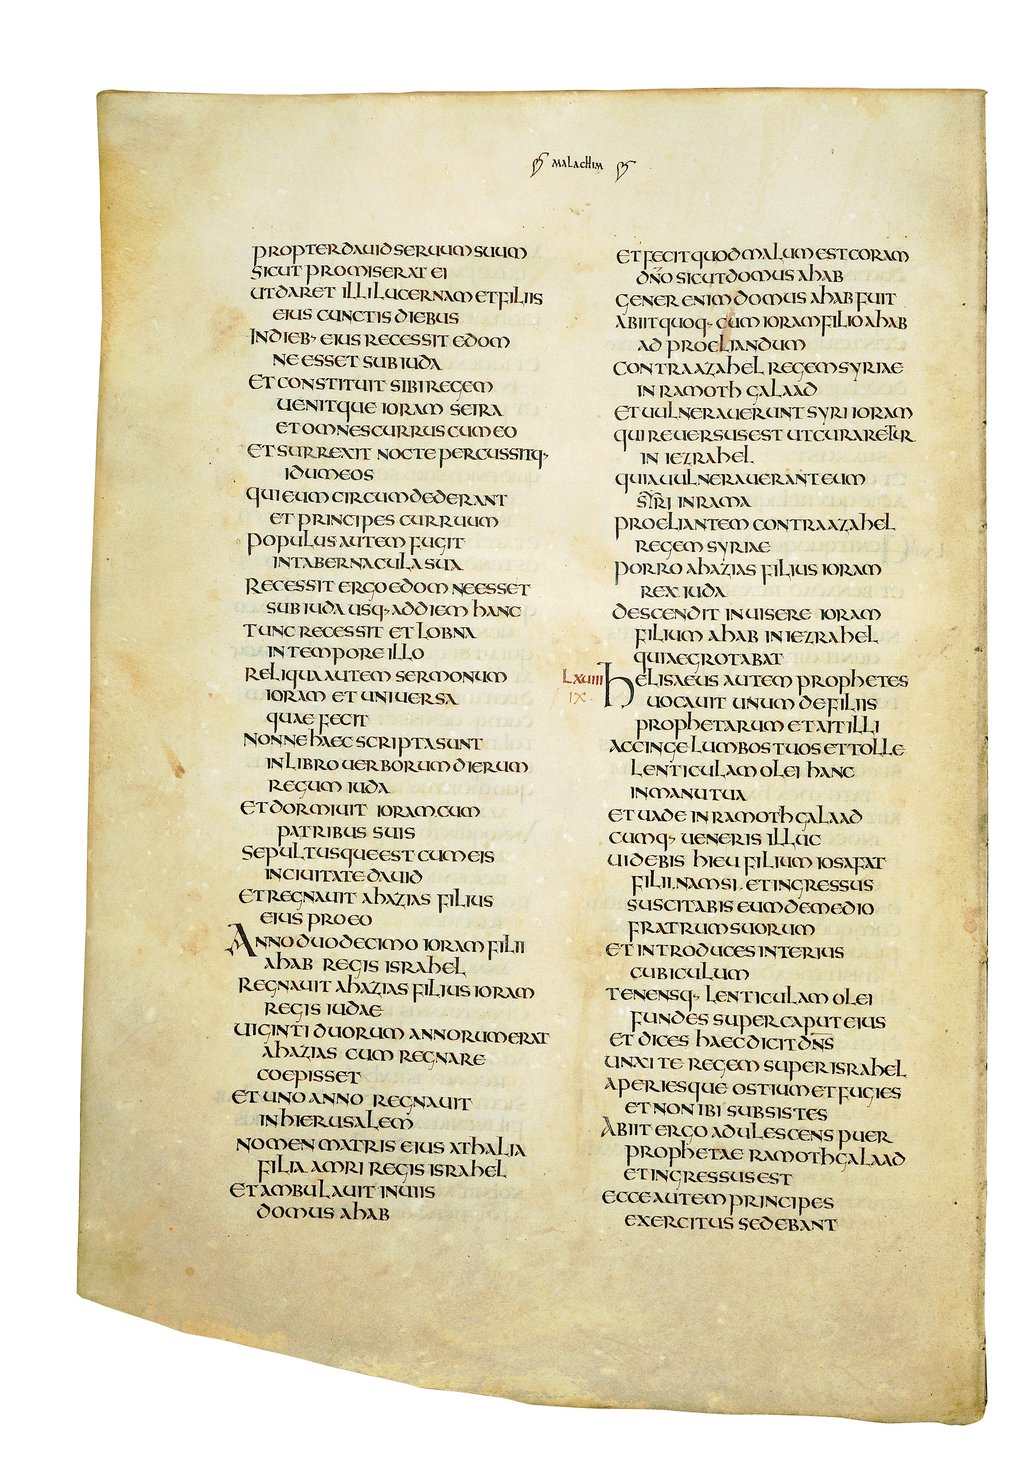 MALACHIM
PROPTER DAUID SERUUM SUUM
SICUT PROMISERAT EI
UT DARET ILLI LUCERNAM ET FILIIS
EIUS CUNCTIS DIEBUS
IN DIEB· EIUS RECESSIT EDOM
NE ESSET SUB IUDA
ET CONSTITUIT SIBI REGEM
UENITQUE IORAM SEIRA
ET OMNES CURRUS CUM EO
ET SURREXIT NOCTE PERCUSSITQ·
IDUMEOS
QUI EUM CIRCUMDEDERANT
ET PRINCIPES CURRUUM
POPULUS AUTEM FUGIT
IN TABERNACULA SUA
RECESSIT ERGO EDOM NE ESSET
SUB IUDA USQ· AD DIEM HANC
TUNC RECESSIT ET LOBNA
IN TEMPORE ILLO
RELIQUA AUTEM SERMONUM
IORAM ET UNIUERSA
QUAE FECIT
NONNE HAEC SCRIPTA SUNT
IN LIBRO UERBORUM DIERUM
REGUM IUDA
ET DORMIUIT IORAM CUM
PATRIBUS SUIS
SEPULTUSQUE EST CUM EIS
IN CIUITATE DAUID
ET REGNAUIT AHAZIAS FILIUS
EIUS PRO EO
ANNO DUODECIMO IORAM FILII
AHAB REGIS ISRAHEL
REGNAUIT AHAZIAS FILIUS IORAM
REGIS IUDAE
UIGINTI DUORUM ANNORUM ERAT
AHAZIAS CUM REGNARE
COEPISSET
ET UNO ANNO REGNAUIT
IN HIERUSALEM
NOMEN MATRIS EIUS ATHALIA
FILIA AMRI REGIS ISRAHEL
ET AMBULAUIT IN UIIS
DOMUS AHAB
ET FECIT QUOD MALUM EST CORAM
DÑO SICUT DOMUS AHAB
GENER ENIM DOMUS AHAB FUIT
ABIIT QUOQ· CUM IORAM FILIO AHAB
AD PROELIANDUM
CONTRA AZAHEL REGEM SYRIAE
IN RAMOTH GALAAD
ET UULNERAUERUNT SYRI IORAM
QUI REUERSUS EST UT CURARETUR
IN IEZRAHEL
QUIA UULNERAUERANT EUM
SYRI IN RAMA
PROELIANTEM CONTRA AZAHEL
REGEM SYRIAE
PORRO AHAZIAS FILIUS IORAM
REX IUDA
DESCENDIT INUISERE IORAM
FILIUM AHAB IN IEZRAHEL
QUIA EGROTABAT
LXVIIII HELISAEUS AUTEM PROPHETES
IX· UOCAUIT UNUM DE FILIIS
PROPHETARUM ET AIT ILLI
ACCINGE LUMBOS TUOS ET TOLLE
LENTICULAM OLEI HANC
IN MANU TUA
ET UADE IN RAMOTH GALAAD
CUMQ· UENERIS ILLUC
UIDEBIS HIEU FILIUM IOSAFAT
FILII NAMSI· ET INGRESSUS
SUSCITABIS EUM DE MEDIO
FRATRUM SUORUM
ET INTRODUCES INTERIUS
CUBICULUM
TENENSQ· LENTICULAM OLEI
FUNDES SUPER CAPUT EIUS
ET DICES HAEC DICIT DÑS
UNXI TE REGEM SUPER ISRAHEL
APERIESQUE OSTIUM ET FUGIES
ET NON IBI SUBSISTES
ABIIT ERGO ADULESCENS PUER
PROPHETAE RAMOTH GALAAD
ET INGRESSUS EST
ECCE AUTEM PRINCIPES
EXERCITUS SEDEBANT